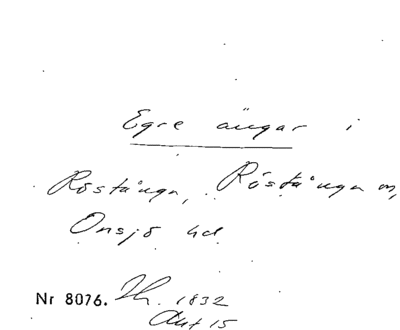 Egre ängar i
Röstånga, Röstånga sn,
Onsjö hd
Nr 8076. Jh. 1832
Akt 15